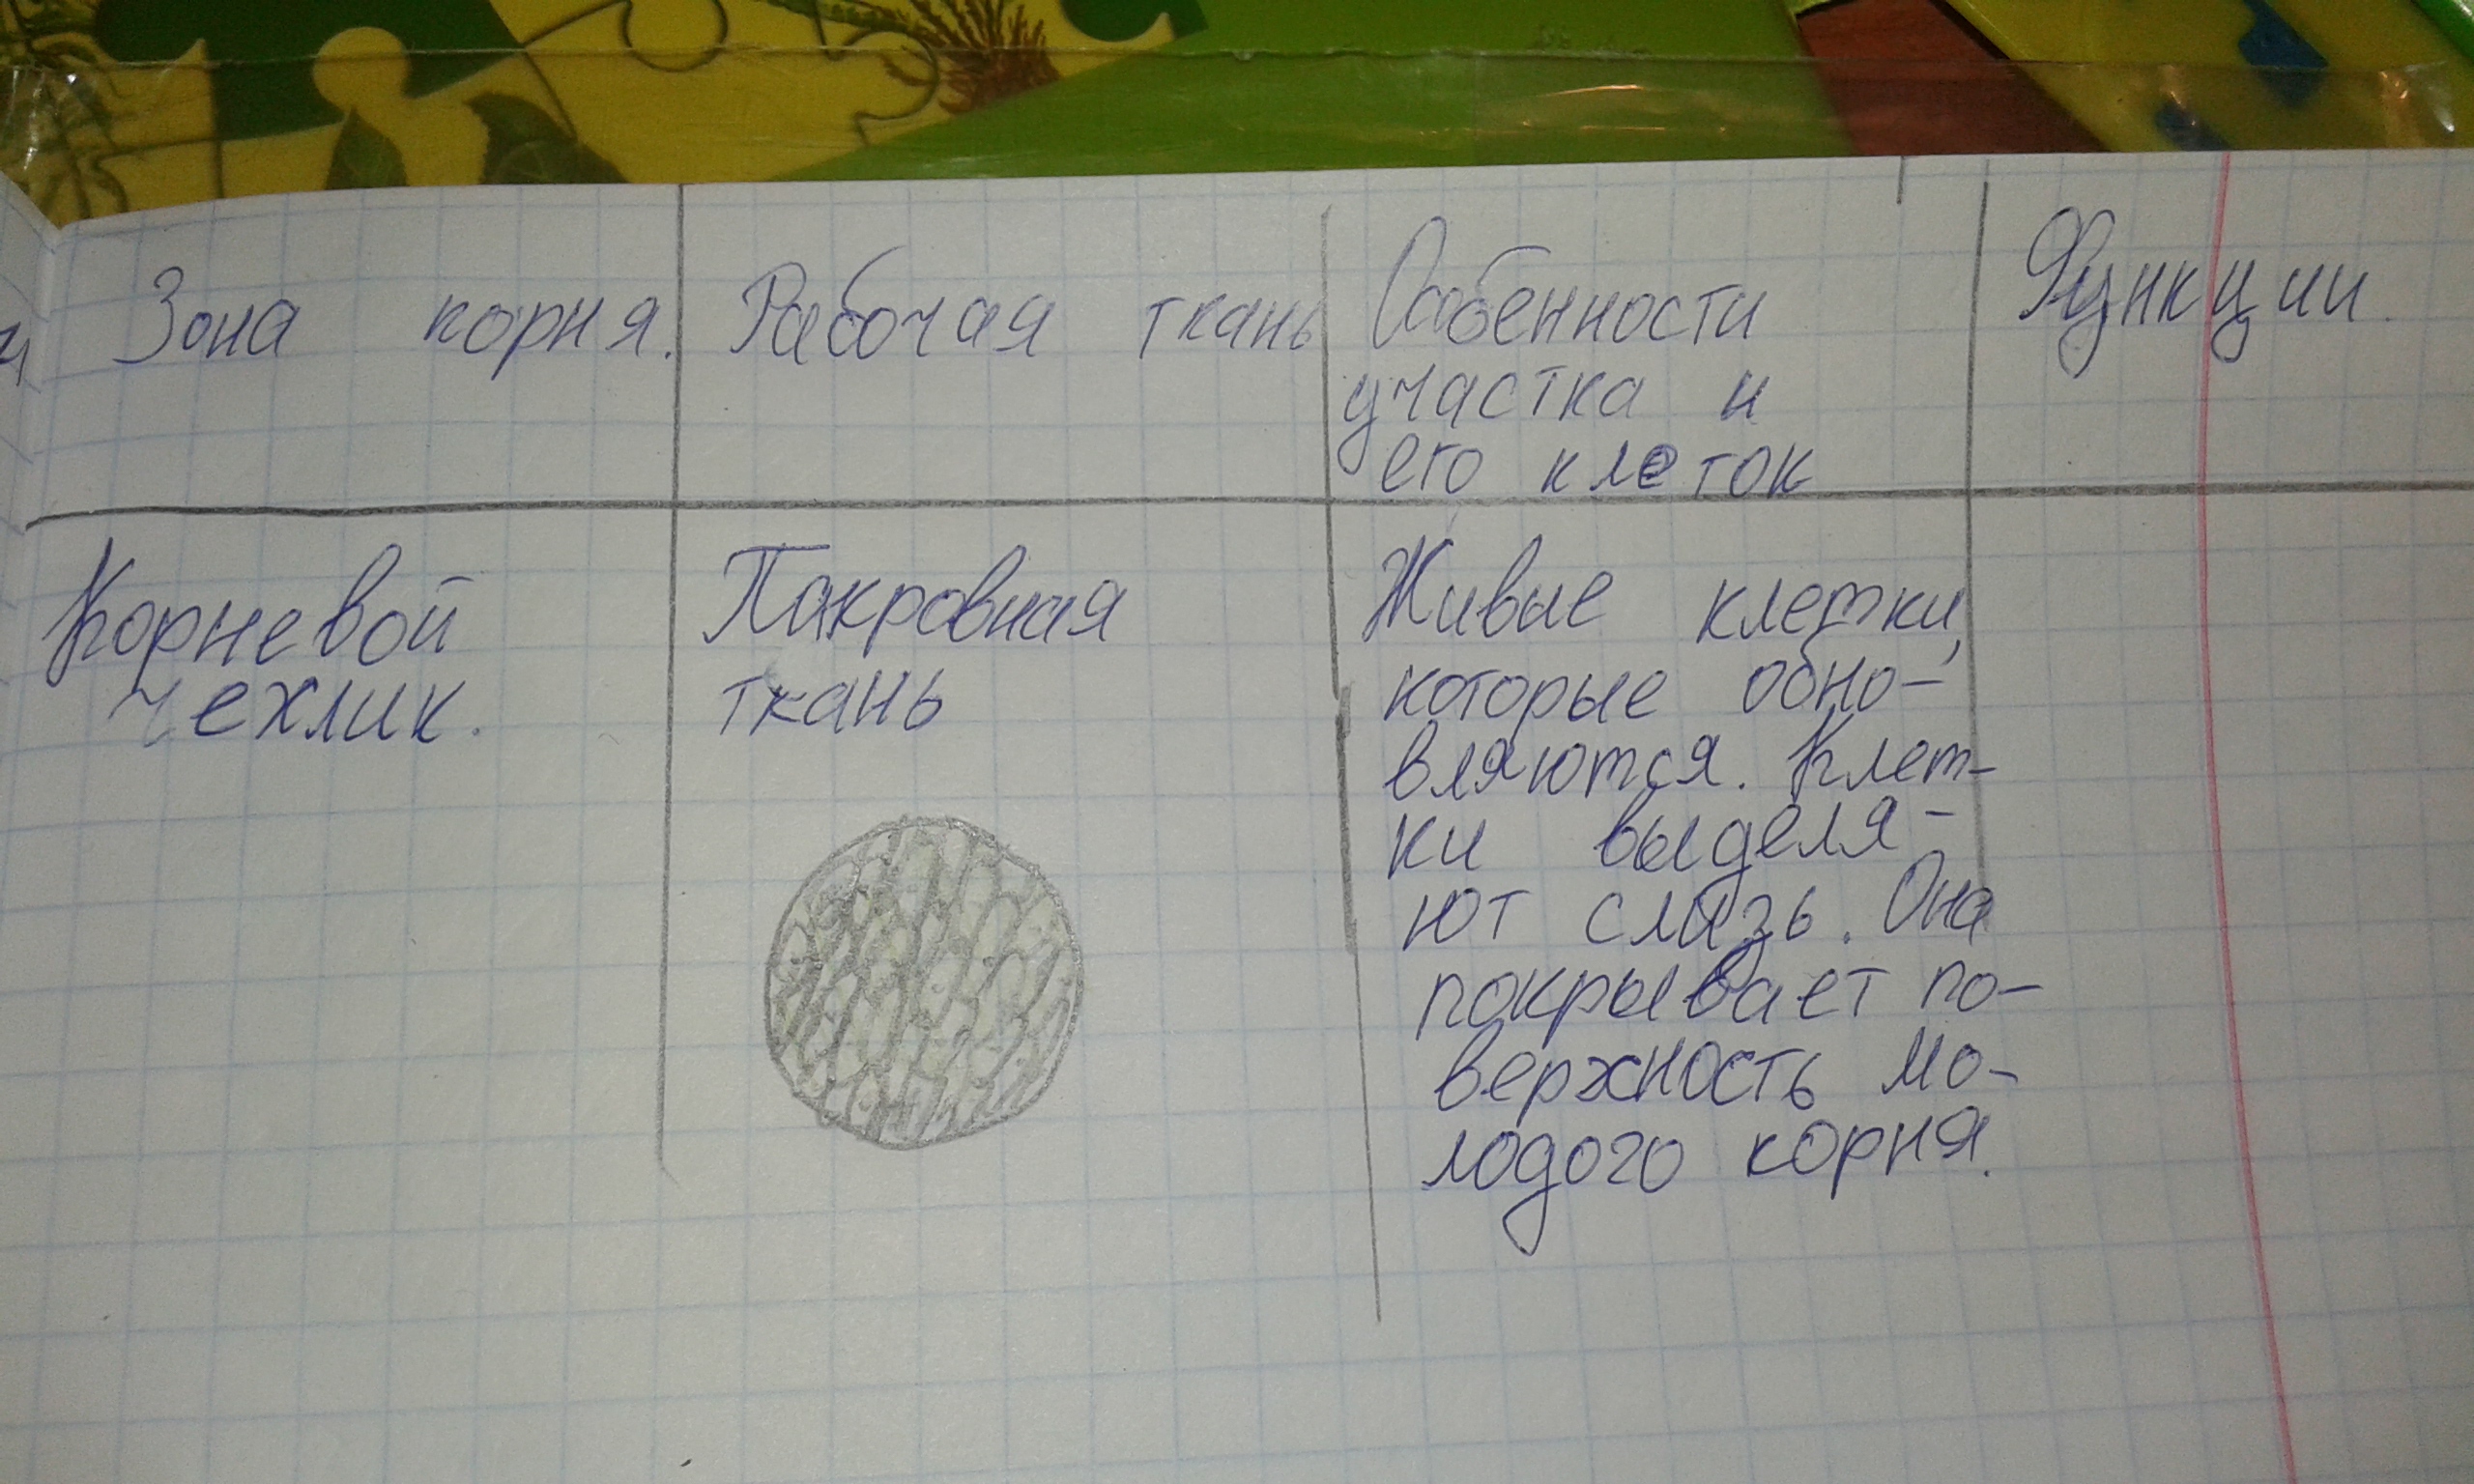 Зона корня.
Рабочая ткань
Особенности
участка и
его клеток
Функции.
Корневой
чехлик.
Покровная
ткань
Живые клетки,
которые обно-
вляются. Клет-
ки выделя-
ют слизь. Она
покрывает по-
верхность мо-
лодого корня.